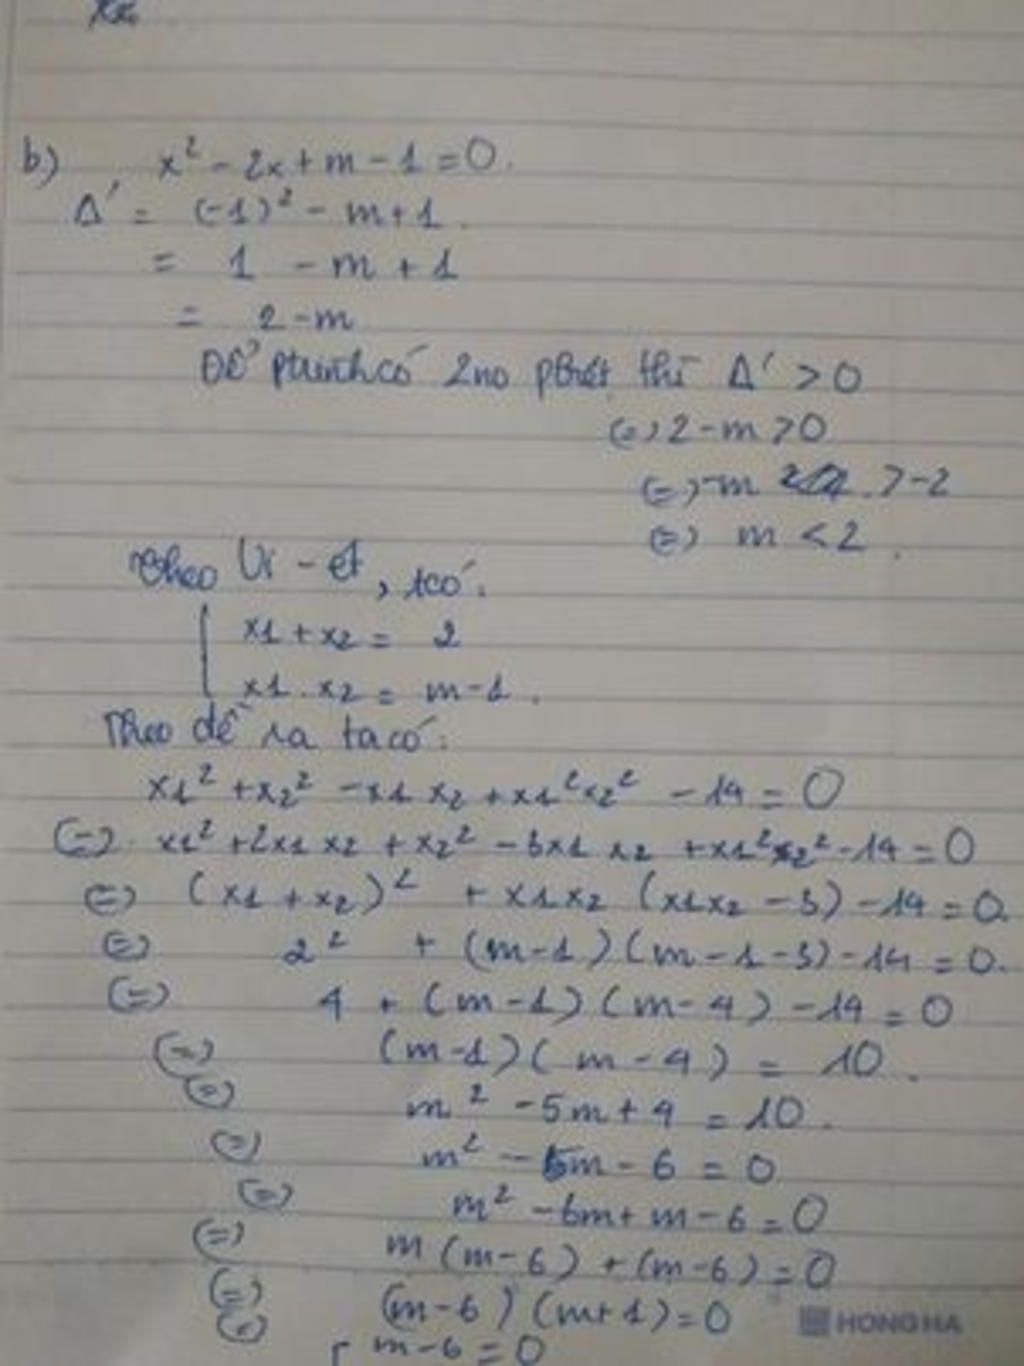 b) x² - 2x + m - 1 = 0.
Δ' = (-1)² - m + 1.
= 1 - m + 1
= 2 - m
Để ptrình có 2 no pbiệt thì Δ' > 0
(=) 2 - m > 0
(=) -m > -2
(=) m < 2.
Theo Vi - ét, tcó:
x1 + x2 = 2
x1 . x2 = m - 1.
Theo đề ra ta có:
x1² + x2² - x1 x2 + x1²x2² - 14 = 0
(=) x1² + 2x1 x2 + x2² - 3x1 x2 + x1²x2² - 14 = 0
(=) (x1 + x2)² + x1x2 (x1x2 - 3) - 14 = 0.
(=) 2² + (m - 1)(m - 1 - 3) - 14 = 0.
(=) 4 + (m - 1)(m - 4) - 14 = 0
(=) (m - 1)(m - 4) = 10.
(=) m² - 5m + 4 = 10.
(=) m² - 5m - 6 = 0
(=) m² - 6m + m - 6 = 0
(=) m (m - 6) + (m - 6) = 0
(=) (m - 6)(m + 1) = 0
(=) [ m - 6 = 0
HONG HA